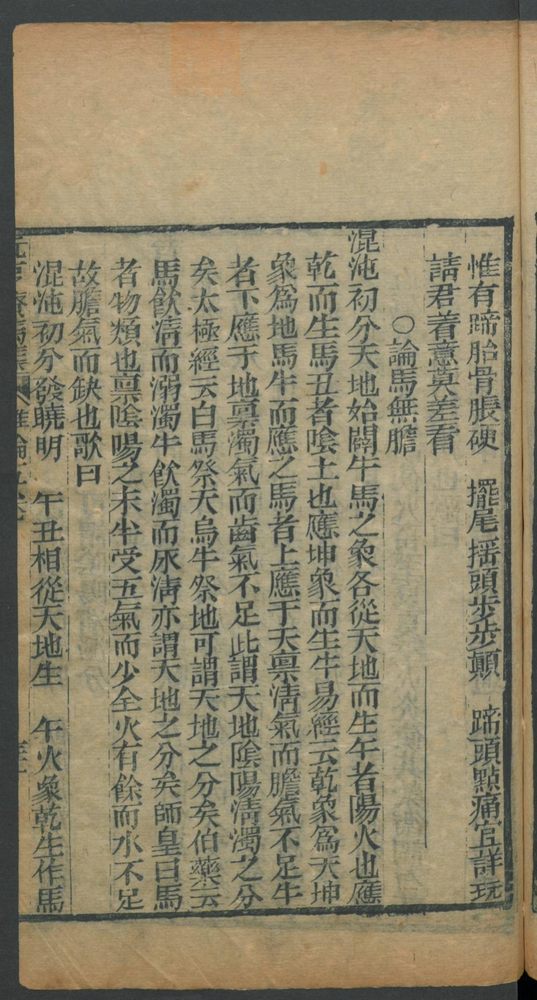 惟有蹄胎骨脹硬　擺尾搖頭步步顛　蹄頭點痛宜詳玩
請君着意莫差看
〇論馬無膽
混沌初分天地始闢牛馬之象各從天地而生午者陽火也應
乾而生馬丑者陰土也應坤象而生牛易經云乾象為天坤
象為地馬牛而應之馬者上應于天禀清氣而膽氣不足牛
者下應于地禀濁氣而齒氣不足此謂天地陰陽清濁之分
矣太極經云白馬祭天烏牛祭地可謂天地之分矣伯藥云
馬飲清而溺濁牛飲濁而尿清亦謂天地之分矣師皇曰馬
者物類也禀陰陽之未半受五氣而少全火有餘而水不足
故膽氣而缺也歌曰
混沌初分發曉明　午丑相從天地生　午火象乾生作馬